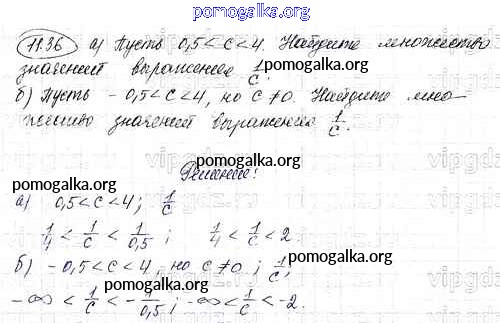 pomogalka.org
11.36 а) Пусть 0,5 < c < 4. Найдите множество
значений выражения 1/c.
pomogalka.org
б) Пусть - 0,5 < c < 4, но c ≠ 0. Найдите мно-
жество значений выражения 1/c.
pomogalka.org
vipgdz
Решение:
pomogalka.org
а) 0,5 < c < 4; 1/c
1/4 < 1/c < 1/0,5; 1/4 < 1/c < 2.
pomogalka.org
vipgdz
б) -0,5 < c < 4, но c ≠ 0; 1/c;
-∞ < 1/c < -1/0,5; -∞ < 1/c < -2.
pomogalka.org